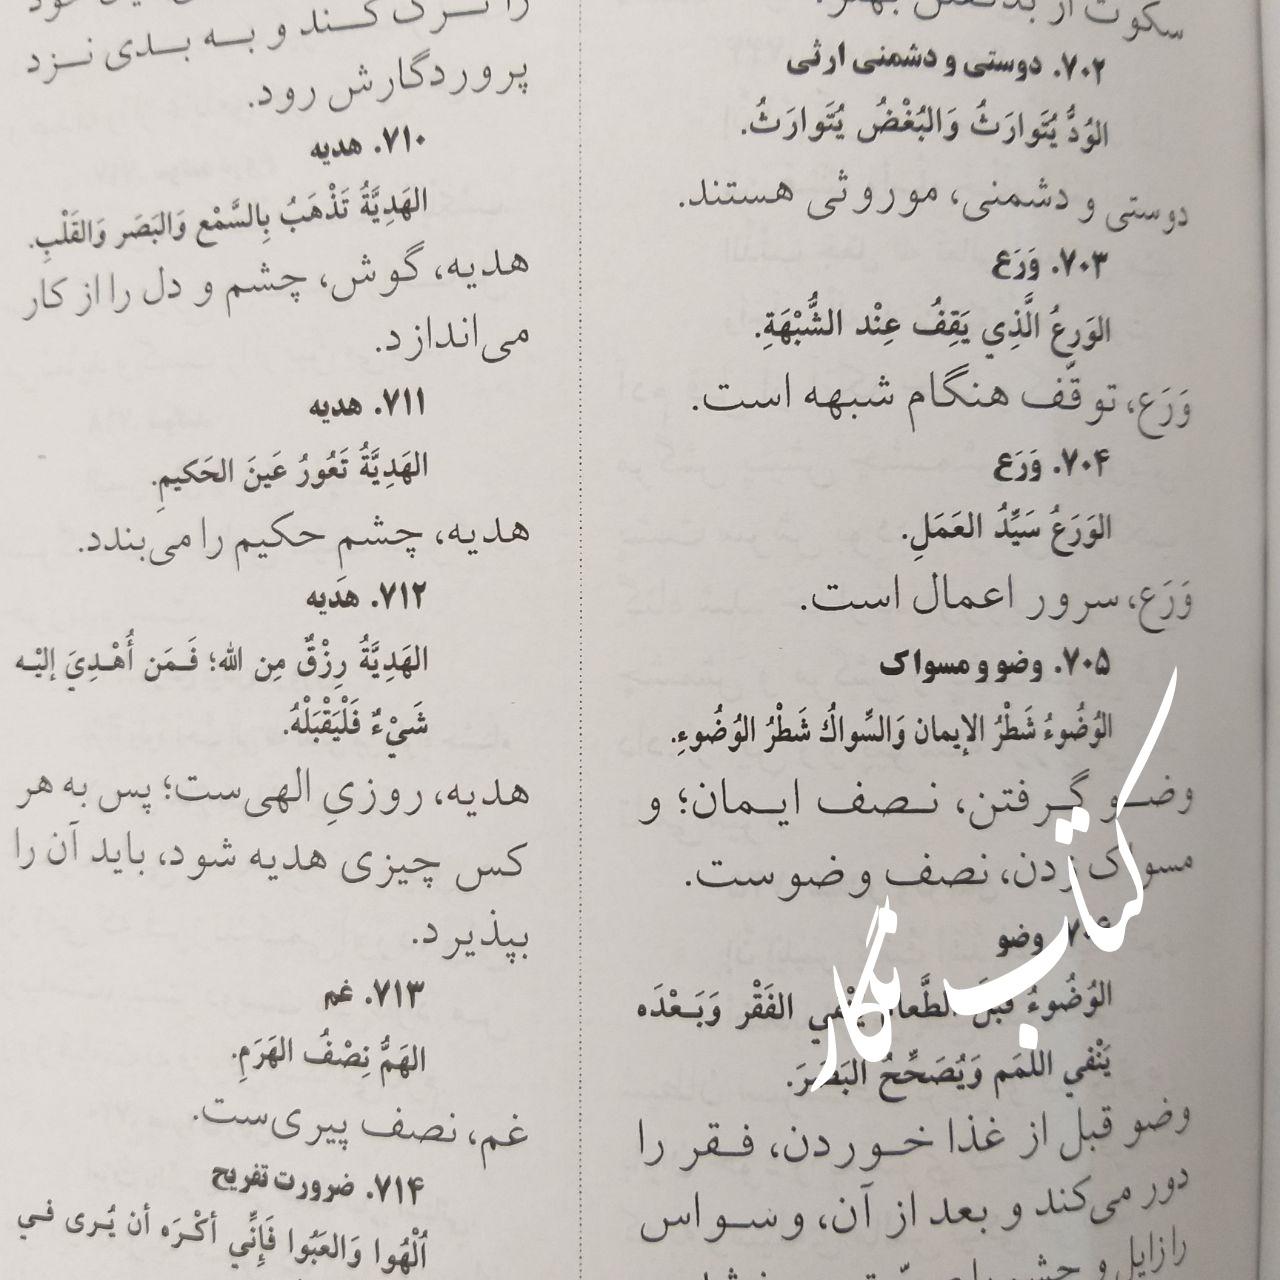 سکوت از بدگفتن بهتر.
۷۰۲. دوستی و دشمنی ارثی
الوُدُّ يُتَوارَثُ وَالبُغْضُ يُتَوارَثُ.
دوستی و دشمنی، موروثی هستند.
۷۰۳. وَرَع
الوَرِعُ الَّذِي يَقِفُ عِنْد الشُّبْهَةِ.
وَرَع، توقّف هنگام شبهه است.
۷۰۴. وَرَع
الوَرَعُ سَيِّدُ العَمَلِ.
وَرَع، سرور اعمال است.
۷۰۵. وضو و مسواک
الوُضُوءُ شَطْرُ الإيمان وَالسِّواكُ شَطْرُ الوُضُوءِ.
وضـو گـرفتن، نـصف ایـمان؛ و
مسواک زدن، نصف وضوست.
۷۰۶. وضو
الوُضُوءُ قَبْلَ الطَّعام يَنْفي الفَقْر وَبَـعْدَه
يَنْفي اللمَم وَيُصَحِّحُ البَصَرَ.
وضو قبل از غذا خـوردن، فـقر را
دور می‌کند و بعد از آن، وسـواس
را زایل و چشم را
را تـرک کـند و بـه بـدی نـزد
پروردگارش رود.
۷۱۰. هدیه
الهَدِيَّةُ تَذْهَبُ بِالسَّمْع وَالبَصَر وَالقَلْبِ.
هدیه، گوش، چشم و دل را از کار
می‌اندازد.
۷۱۱. هدیه
الهَدِيَّةُ تَعُورُ عَينَ الحَكيمِ.
هدیه، چشم حکیم را می‌بندد.
۷۱۲. هدَیه
الهَدِيَّةُ رِزْقٌ مِن الله؛ فَـمَن أُهْـدِيَ إليْـه
شَيْءٌ فَلْيَقْبَلْهُ.
هدیه، روزیِ الهی‌ست؛ پس به هر
کس چیزی هدیه شود، باید آن را
بپذیرد.
۷۱۳. غم
الهَمُّ نِصْفُ الهَرَمِ.
غم، نصف پیری‌ست.
۷۱۴. ضرورت تفریح
اُلْهُوا وَالعَبُوا فَإِنِّي أكْرَه أن يُـرى فـي
کتاب نگار